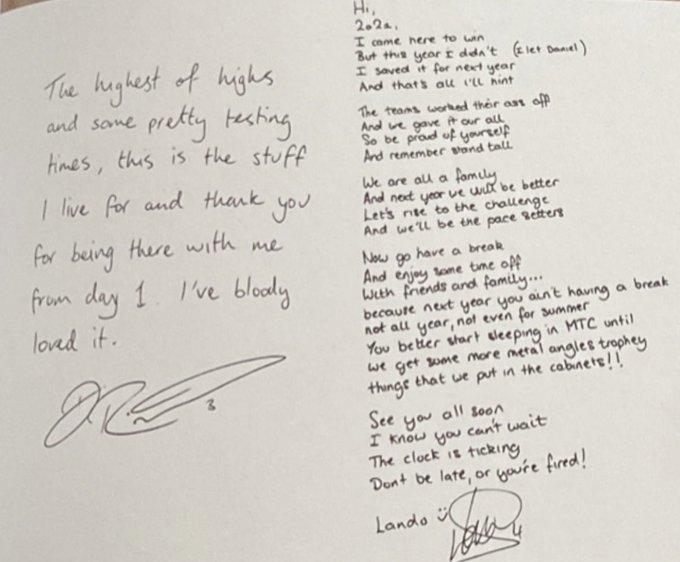 The highest of highs
and some pretty testing
times, this is the stuff
I live for and thank you
for being there with me
from day 1. I've bloody
loved it.
3
Hi,
2022.
I came here to win
But this year I didn't (I let Daniel)
I saved it for next year
And that's all I'll hint
The teams worked their ass off
And we gave it our all
So be proud of yourself
And remember stand tall
We are all a family
And next year we will be better
Let's rise to the challenge
And we'll be the pace setters
Now go have a break
And enjoy some time off
With friends and family...
because next year you ain't having a break
not all year, not even for summer
You better start sleeping in MTC until
we get some more metal angles trophey
things that we put in the cabinets!!
See you all soon
I know you can't wait
The clock is ticking
Dont be late, or you're fired!
Lando
4